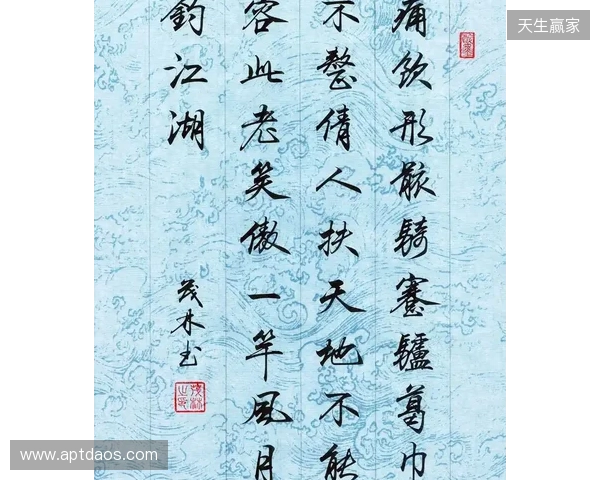 痛饮形骸騎蹇驢葛巾
不整倩人扶天地不能
容此老笑傲一竿風月
釣江湖
茂林书
天生赢家
www.aptdaos.com